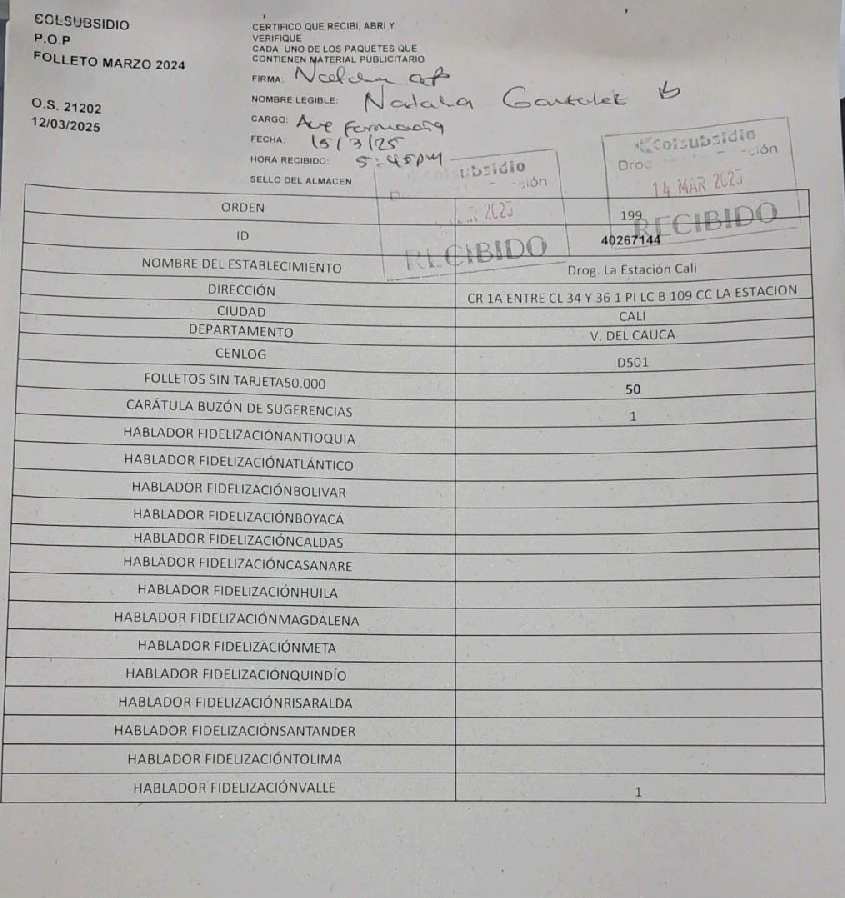 COLSUBSIDIO
P.O.P
FOLLETO MARZO 2024
O.S. 21202
12/03/2025
CERTIFICO QUE RECIBI, ABRI Y
VERIFIQUE
CADA UNO DE LOS PAQUETES QUE
CONTIENEN MATERIAL PUBLICITARIO
FIRMA:
NOMBRE LEGIBLE: Natalia Gonzalez
CARGO:
FECHA: 15/3/25
HORA RECIBIDO: 5:45pm
SELLO DEL ALMACEN
Colsubsidio
RECIBIDO
Colsubsidio
14 MAR 2025
RECIBIDO
ORDEN 199
ID 40267144
NOMBRE DEL ESTABLECIMIENTO Drog. La Estación Cali
DIRECCIÓN CR 1A ENTRE CL 34 Y 36 1 PI LC B 109 CC LA ESTACION
CIUDAD CALI
DEPARTAMENTO V. DEL CAUCA
CENLOG D501
FOLLETOS SIN TARJETA50.000 50
CARÁTULA BUZÓN DE SUGERENCIAS 1
HABLADOR FIDELIZACIÓNANTIOQUIA
HABLADOR FIDELIZACIÓNATLÁNTICO
HABLADOR FIDELIZACIÓNBOLIVAR
HABLADOR FIDELIZACIÓNBOYACÁ
HABLADOR FIDELIZACIÓNCALDAS
HABLADOR FIDELIZACIÓNCASANARE
HABLADOR FIDELIZACIÓNHUILA
HABLADOR FIDELIZACIÓNMAGDALENA
HABLADOR FIDELIZACIÓNMETA
HABLADOR FIDELIZACIÓNQUINDÍO
HABLADOR FIDELIZACIÓNRISARALDA
HABLADOR FIDELIZACIÓNSANTANDER
HABLADOR FIDELIZACIÓNTOLIMA
HABLADOR FIDELIZACIÓNVALLE 1